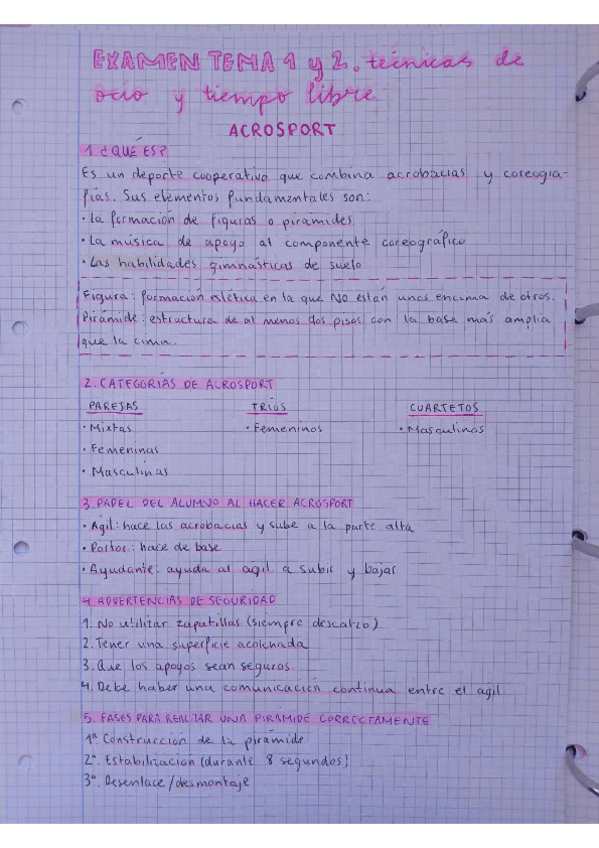 EXAMEN TEMA 1 y 2. técnicas de
ocio y tiempo libre
ACROSPORT
1. ¿QUÉ ES?
Es un deporte cooperativo que combina acrobacias y coreogra-
fías. Sus elementos fundamentales son:
· La formación de figuras o pirámides
· La música de apoyo al componente coreográfico
· Las habilidades gimnásticas de suelo
Figura: formación estética en la que NO están unos encima de otros.
Pirámide: estructura de al menos dos pisos con la base más amplia
que la cima.
2. CATEGORÍAS DE ACROSPORT
PAREJAS TRÍOS CUARTETOS
· Mixtas · Femeninos · Masculinos
· Femeninas
· Masculinas
3. PAPEL DEL ALUMNO AL HACER ACROSPORT
· Ágil: hace las acrobacias y sube a la parte alta
· Portor: hace de base
· Ayudante: ayuda al ágil a subir y bajar
4. ADVERTENCIAS DE SEGURIDAD
1. No utilizar zapatillas (siempre descalzo)
2. Tener una superficie acolchada
3. Que los apoyos sean seguros
4. Debe haber una comunicación continua entre el ágil
5. FASES PARA REALIZAR UNA PIRÁMIDE CORRECTAMENTE
1ª. Construcción de la pirámide
2ª. Estabilización (durante 8 segundos)
3ª. Desenlace/desmontaje